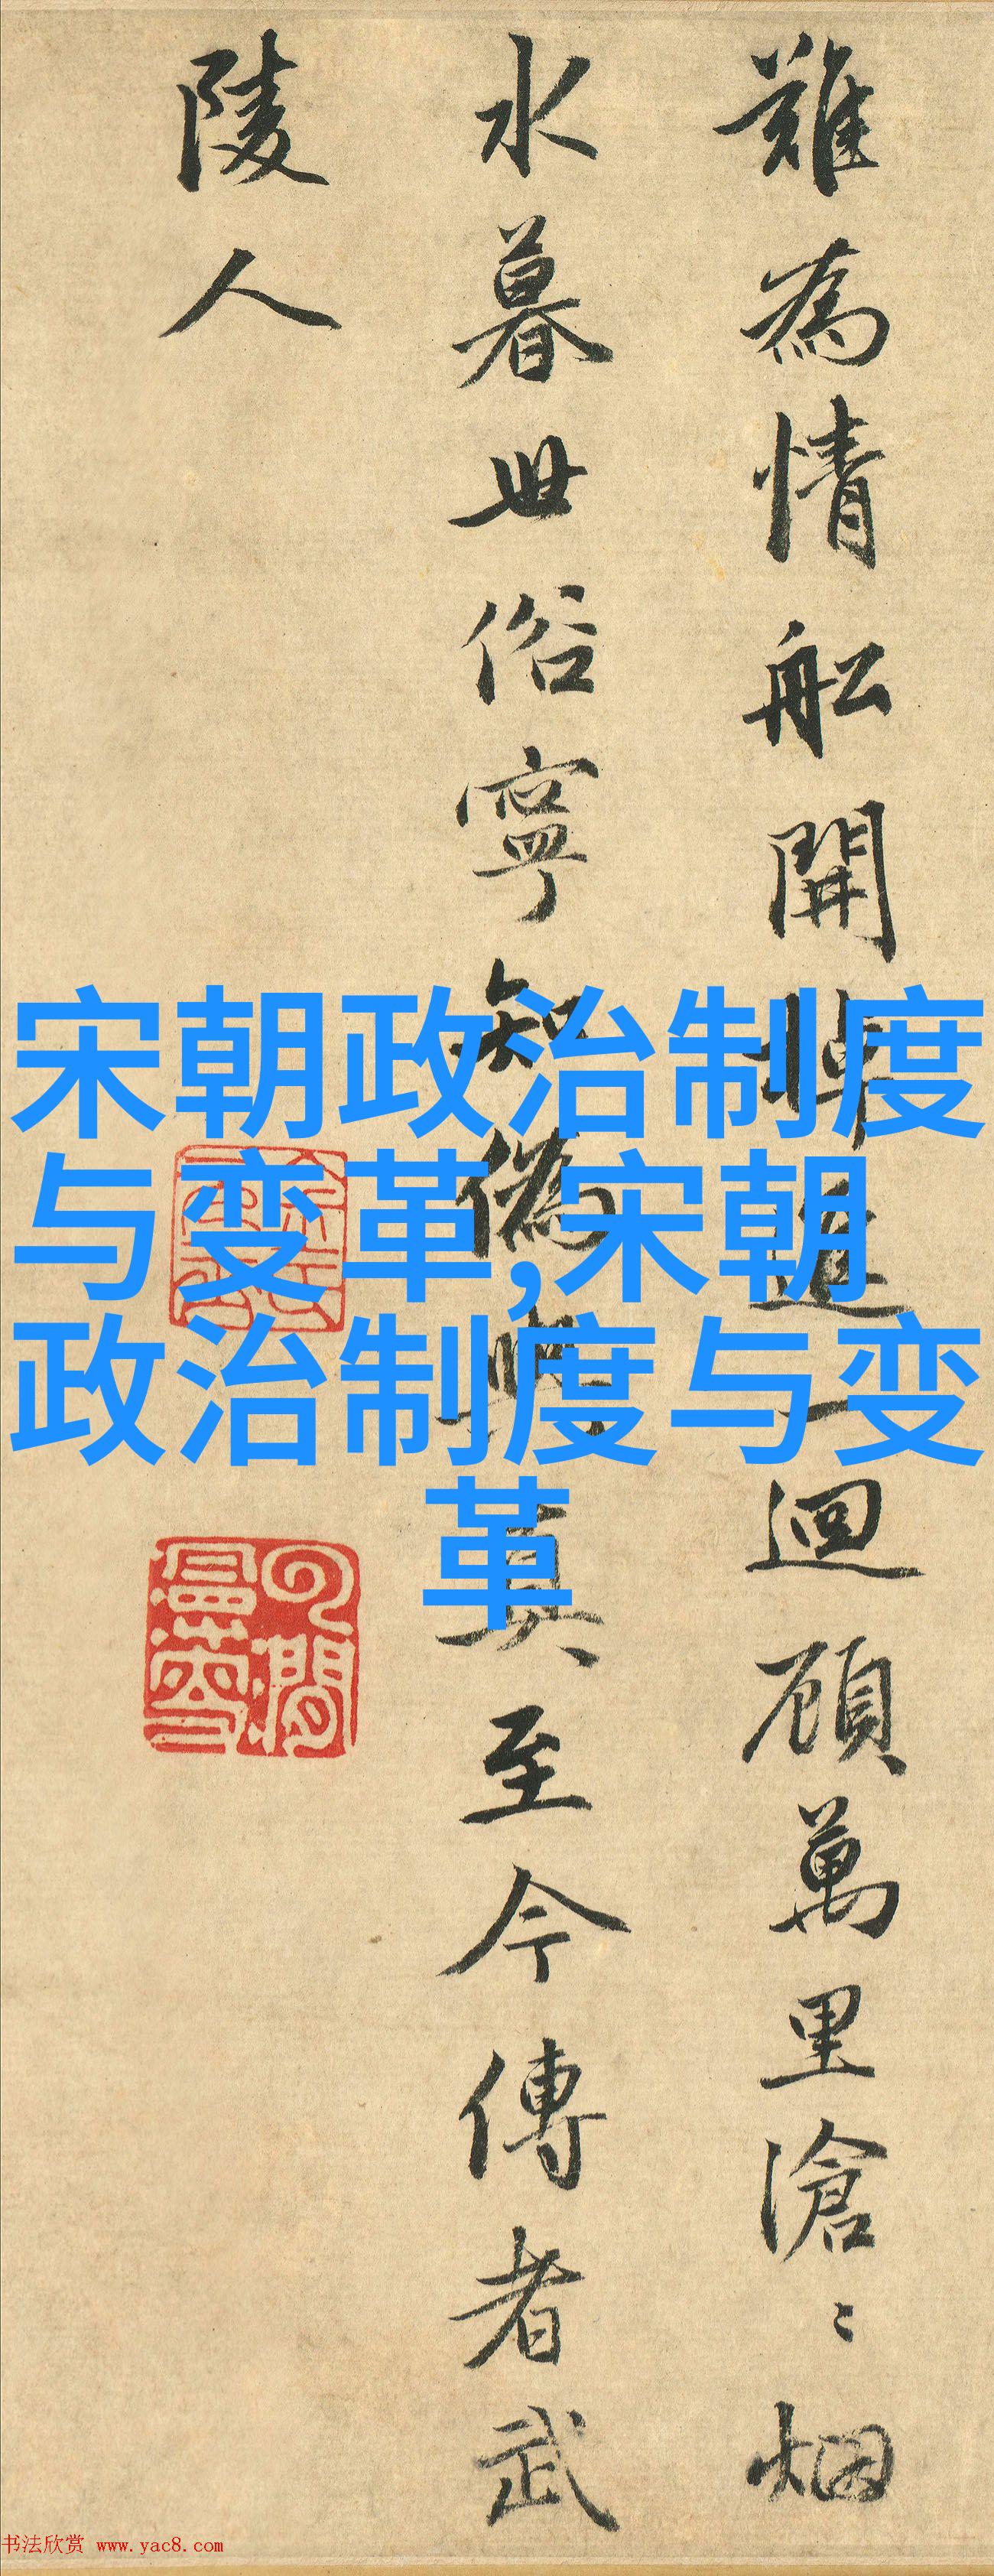 難為情舩開棹進一迴顧萬里滄〻烟
水暮世俗寧知偽與真至今傳者武
陵人
宋朝政治制度
与变革,宋朝
政治制度与变
革
书法欣赏 www.yac8.com